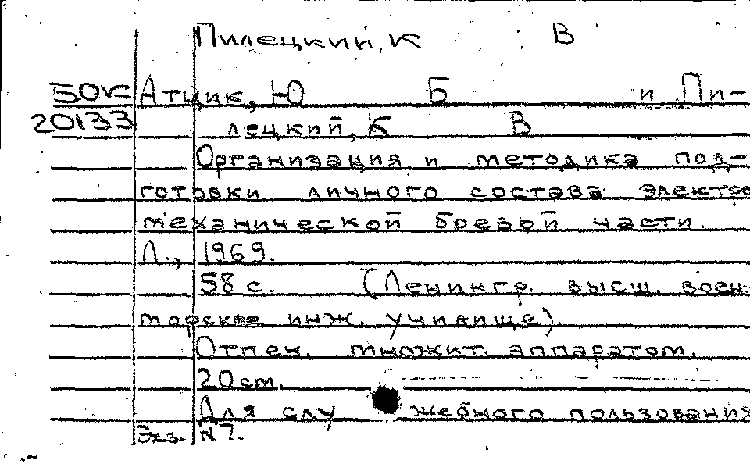 Пилецкий, К В
БОК Атцик, Ю Б и Пи-
20133 лецкий, К В
Организация и методика под-
готовки личного состава электро
механической боевой части.
Л., 1969.
58 с. (Ленингр. высш. воен
морское инж. училище)
Отпеч. множит. аппаратом.
20 см.
Для служебного пользования
Экз. N 7.